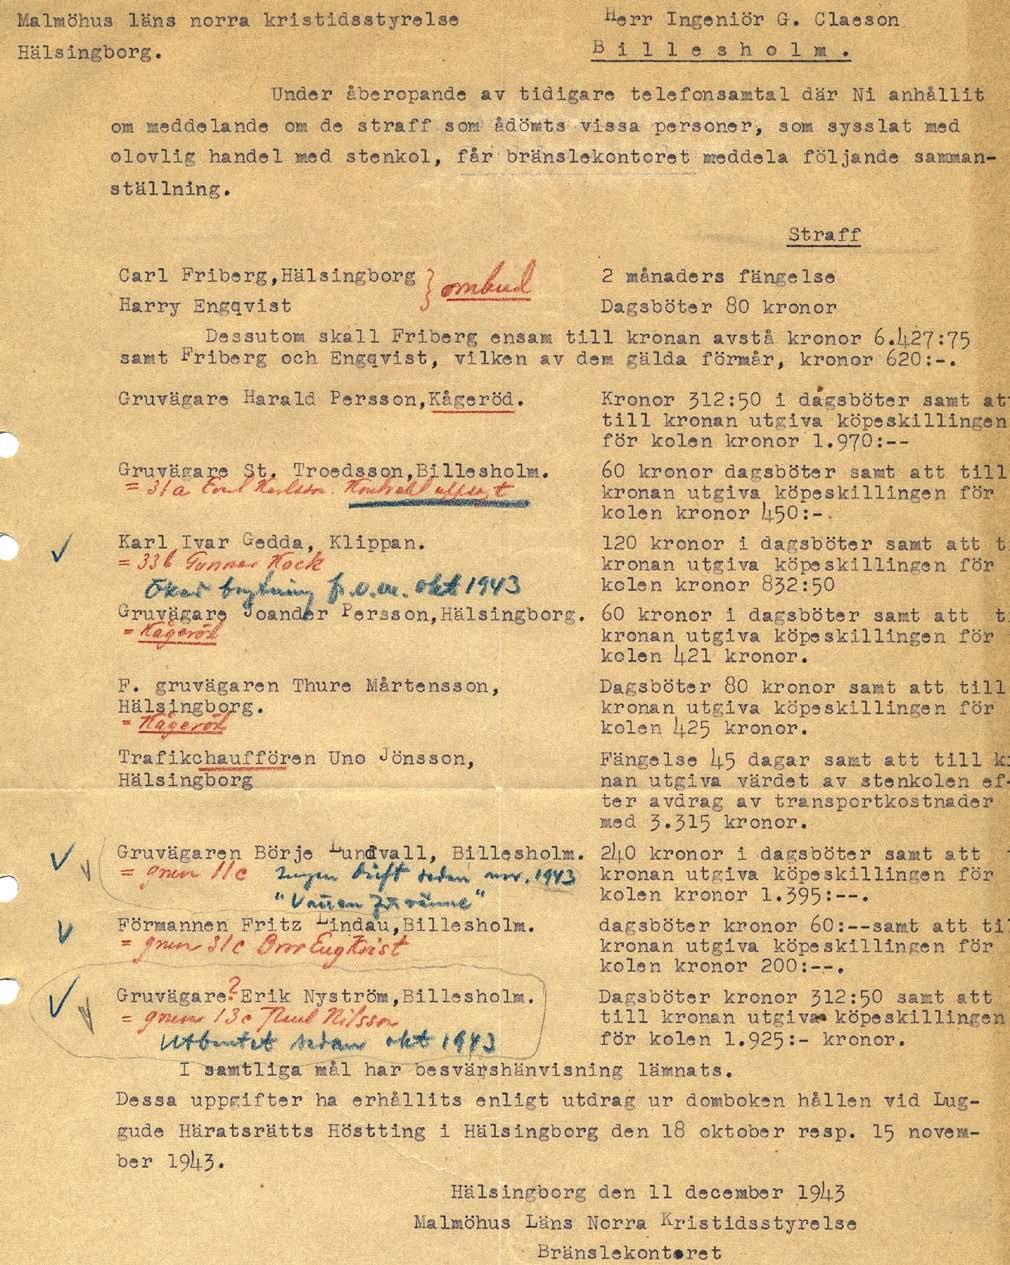 Malmöhus läns norra kristidsstyrelse
Hälsingborg.
Herr Ingeniör G. Claeson
Billesholm.
Under åberopande av tidigare telefonsamtal där Ni anhållit
om meddelande om de straff som ådömts vissa personer, som sysslat med
olovlig handel med stenkol, får bränslekontoret meddela följande samman-
ställning.
Straff
Carl Friberg,Hälsingborg } ombud 2 månaders fängelse
Harry Engqvist Dagsböter 80 kronor
Dessutom skall Friberg ensam till kronan avstå kronor 6.427:75
samt Friberg och Engqvist, vilken av dem gälda förmår, kronor 620:-.
Gruvägare Harald Persson,Kågeröd. Kronor 312:50 i dagsböter samt at
till kronan utgiva köpeskillingen
för kolen kronor 1.970:--
Gruvägare St. Troedsson,Billesholm. 60 kronor dagsböter samt att till
= 31a Karlsson. kronan utgiva köpeskillingen för
kolen kronor 450:-.
Karl Ivar Gedda, Klippan. 120 kronor i dagsböter samt att t
= 33b Gunnar Kock kronan utgiva köpeskillingen för
Ökad brytning fr.o.m. okt 1943 kolen kronor 832:50
Gruvägare Joander Persson,Hälsingborg. 60 kronor i dagsböter samt att t
= Kågeröd kronan utgiva köpeskillingen för
kolen 421 kronor.
F. gruvägaren Thure Mårtensson, Dagsböter 80 kronor samt att till
Hälsingborg. kronan utgiva köpeskillingen för
= Kågeröd kolen 425 kronor.
TrafikchaufFören Uno Jönsson, Fängelse 45 dagar samt att till k
Hälsingborg nan utgiva värdet av stenkolen ef-
ter avdrag av transportkostnader
med 3.315 kronor.
Gruvägaren Börje Lundvall, Billesholm. 240 kronor i dagsböter samt att
= gruva 11c Ingen drift sedan nov. 1943 kronan utgiva köpeskillingen för
kolen kronor 1.395:--.
Förmannen Fritz Lindau,Billesholm. dagsböter kronor 60:--samt att ti
= gruva 31c Bror Engkvist kronan utgiva köpeskillingen för
kolen kronor 200:--.
Gruvägare? Erik Nyström,Billesholm. Dagsböter kronor 312:50 samt att
= gruva 13c Paul Nilsson till kronan utgiva köpeskillingen
Utbrutet sedan okt 1943 för kolen 1.925:- kronor.
I samtliga mål har besvärshänvisning lämnats.
Dessa uppgifter ha erhållits enligt utdrag ur domboken hållen vid Lug-
gude Häratsrätts Höstting i Hälsingborg den 18 oktober resp. 15 novem-
ber 1943.
Hälsingborg den 11 december 1943
Malmöhus Läns Norra Kristidsstyrelse
Bränslekontoret